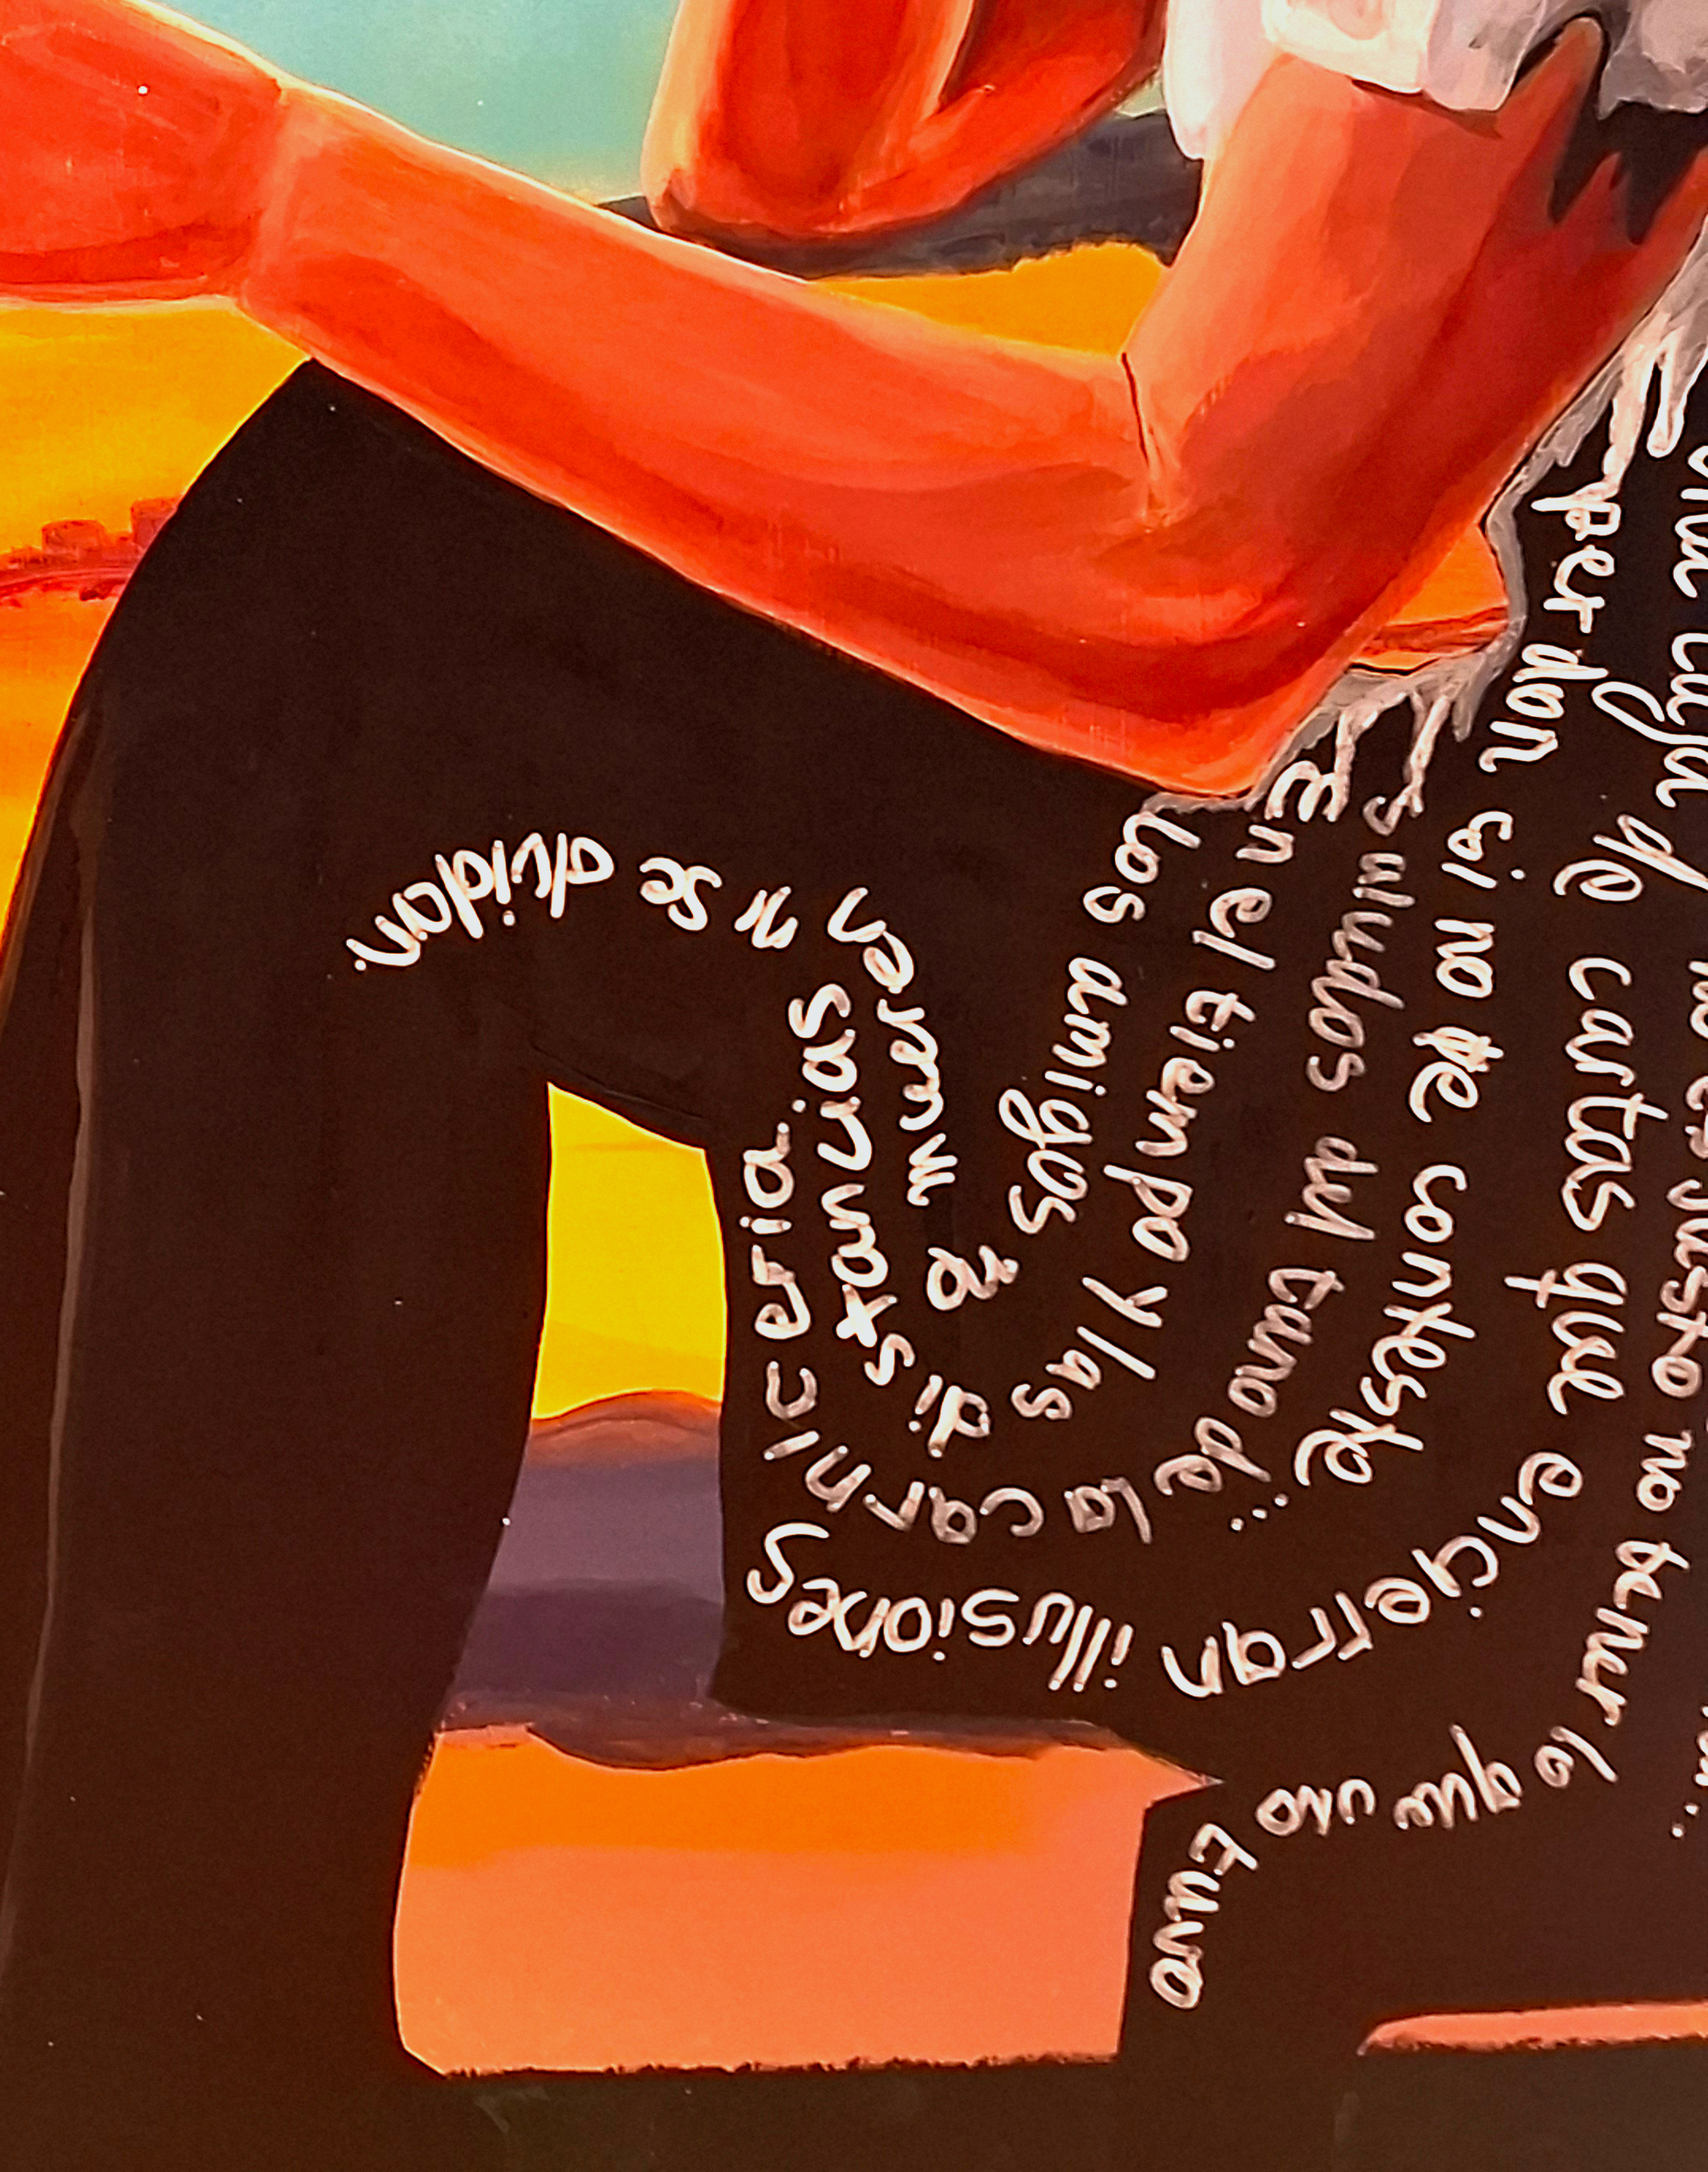 los amigos q mueren n se olvidan.
En el tiempo y las distancias
saludos del tano de la carniceria.
perdon si no te conteste
una caja de cartas que encierran illusiones
no es justo no tener lo que uno tuvo